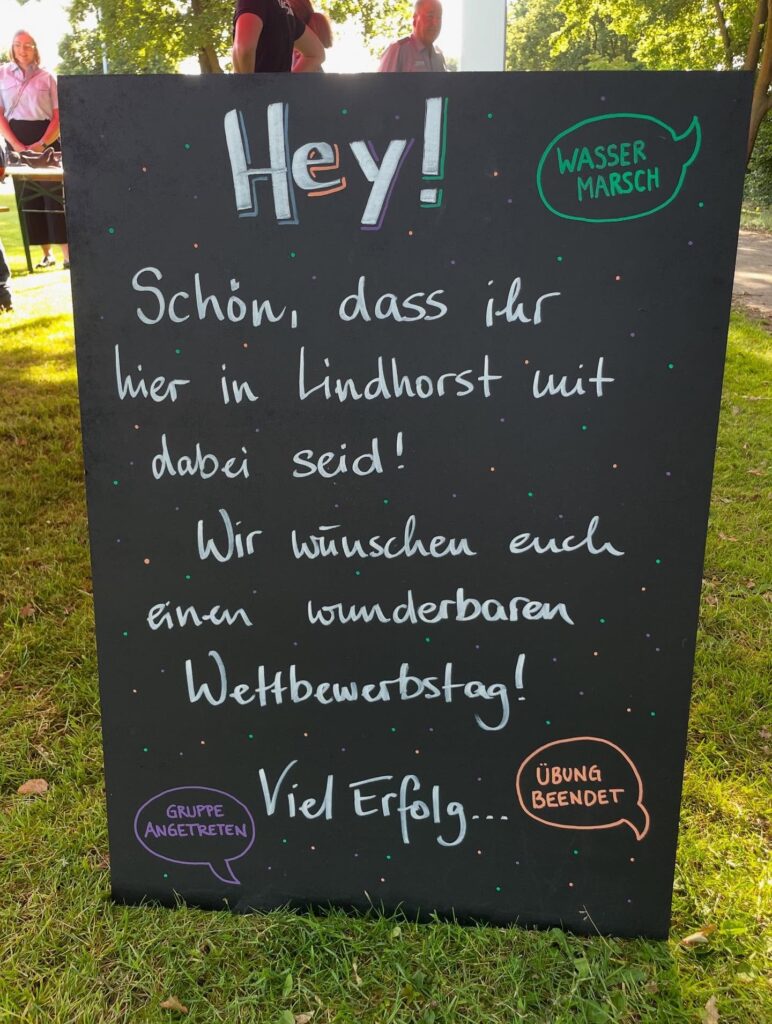 Hey!
WASSER
MARSCH
Schön, dass ihr
hier in Lindhorst mit
dabei seid!
Wir wünschen euch
einen wunderbaren
Wettbewerbstag!
Viel Erfolg...
ÜBUNG
BEENDET
GRUPPE
ANGETRETEN